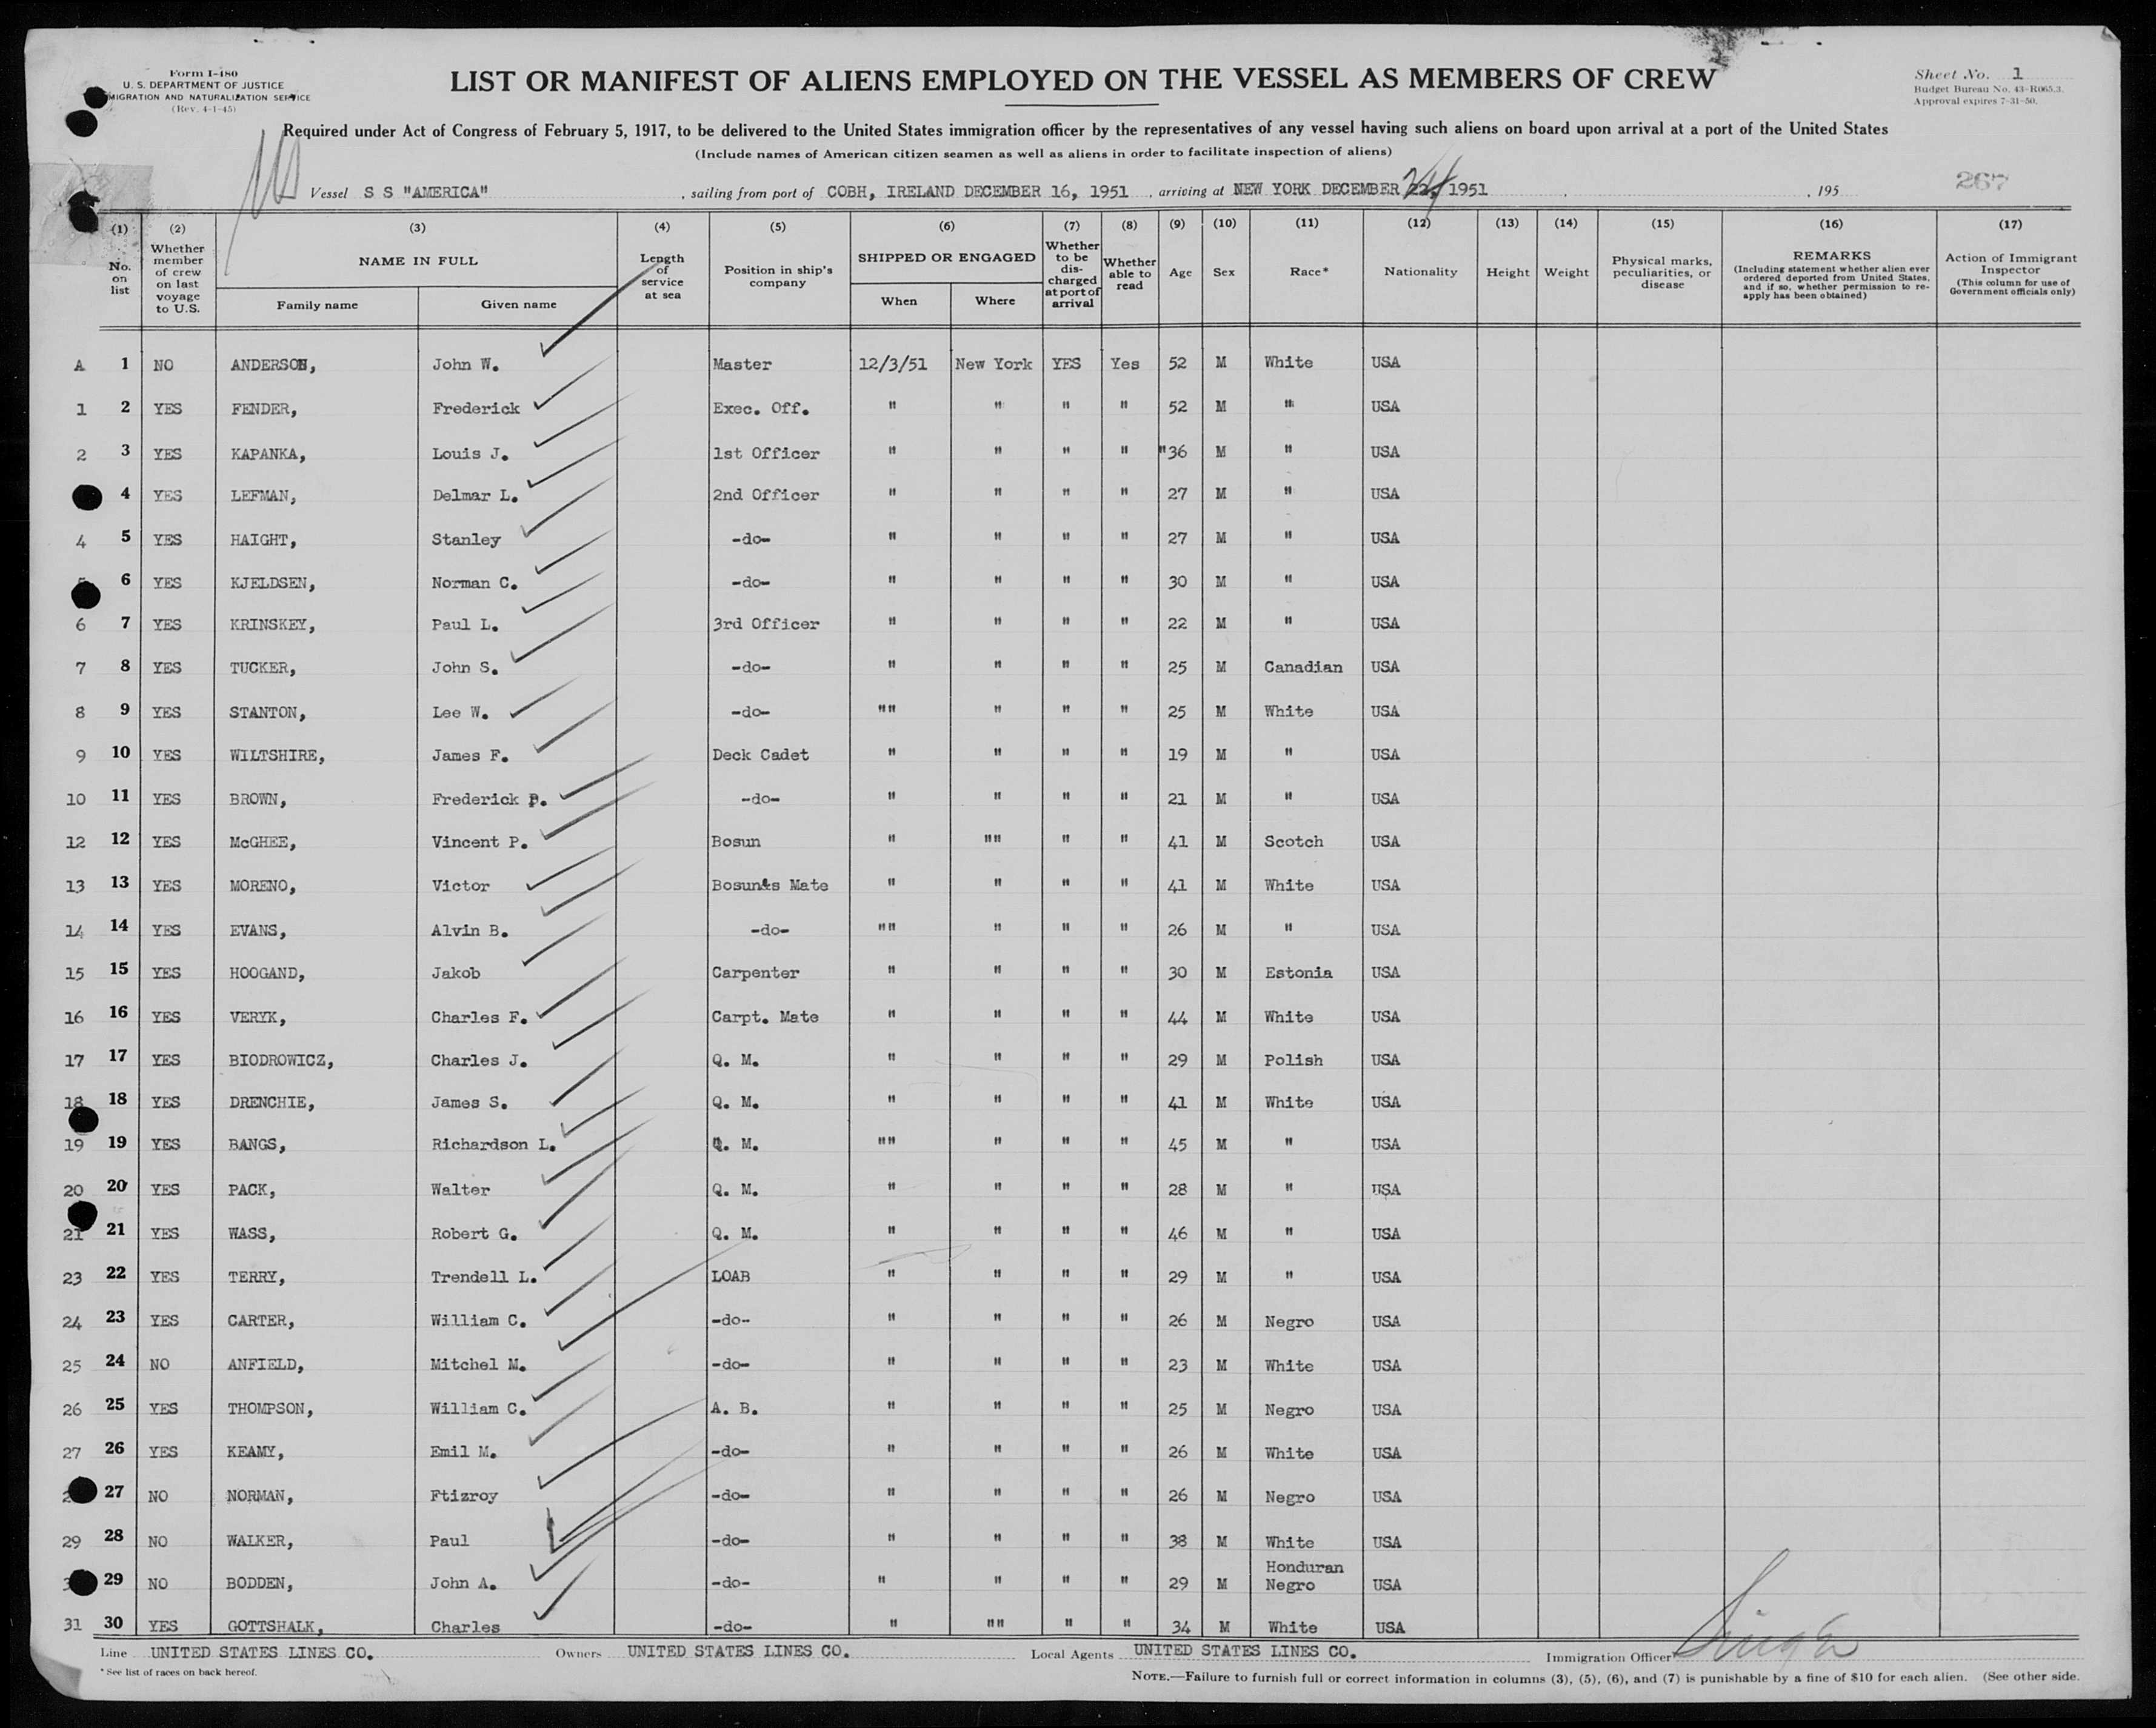 Form I-480
U. S. DEPARTMENT OF JUSTICE
MIGRATION AND NATURALIZATION SERVICE
(Rev. 4-1-45)
LIST OR MANIFEST OF ALIENS EMPLOYED ON THE VESSEL AS MEMBERS OF CREW
Sheet No. 1
Budget Bureau No. 43-R065.3.
Approval expires 7-31-50.
Required under Act of Congress of February 5, 1917, to be delivered to the United States immigration officer by the representatives of any vessel having such aliens on board upon arrival at a port of the United States
(Include names of American citizen seamen as well as aliens in order to facilitate inspection of aliens)
267
Vessel S S "AMERICA" , sailing from port of COBH, IRELAND DECEMBER 16, 1951 , arriving at NEW YORK DECEMBER 24, 1951 , 195
(1) (2) (3) (4) (5) (6) (7) (8) (9) (10) (11) (12) (13) (14) (15) (16) (17)
No. on list
Whether member of crew on last voyage to U.S.
NAME IN FULL
Family name Given name
Length of service at sea
Position in ship's company
SHIPPED OR ENGAGED
When Where
Whether to be discharged at port of arrival
Whether able to read
Age Sex Race* Nationality Height Weight
Physical marks, peculiarities, or disease
REMARKS
(Including statement whether alien ever ordered deported from United States, and if so, whether permission to re-apply has been obtained)
Action of Immigrant Inspector
(This column for use of Government officials only)
A 1 NO ANDERSON, John W. Master 12/3/51 New York YES Yes 52 M White USA
1 2 YES FENDER, Frederick Exec. Off. " " " " 52 M " USA
2 3 YES KAPANKA, Louis J. 1st Officer " " " " "36 M " USA
4 YES LEFMAN, Delmar L. 2nd Officer " " " " 27 M " USA
4 5 YES HAIGHT, Stanley -do- " " " " 27 M " USA
5 6 YES KJELDSEN, Norman C. -do- " " " " 30 M " USA
6 7 YES KRINSKEY, Paul L. 3rd Officer " " " " 22 M " USA
7 8 YES TUCKER, John S. -do- " " " " 25 M Canadian USA
8 9 YES STANTON, Lee W. -do- "" " " " 25 M White USA
9 10 YES WILTSHIRE, James F. Deck Cadet " " " " 19 M " USA
10 11 YES BROWN, Frederick P. -do- " " " " 21 M " USA
12 12 YES McGHEE, Vincent P. Bosun " "" " " 41 M Scotch USA
13 13 YES MORENO, Victor Bosun&s Mate " " " " 41 M White USA
14 14 YES EVANS, Alvin B. -do- "" " " " 26 M " USA
15 15 YES HOOGAND, Jakob Carpenter " " " " 30 M Estonia USA
16 16 YES VERYK, Charles F. Carpt. Mate " " " " 44 M White USA
17 17 YES BIODROWICZ, Charles J. Q. M. " " " " 29 M Polish USA
18 18 YES DRENCHIE, James S. Q. M. " " " " 41 M White USA
19 19 YES BANGS, Richardson L. Q. M. "" " " " 45 M " USA
20 20 YES PACK, Walter Q. M. " " " " 28 M " USA
21 21 YES WASS, Robert G. Q. M. " " " " 46 M " USA
23 22 YES TERRY, Trendell L. LOAB " " " " 29 M " USA
24 23 YES CARTER, William C. -do- " " " " 26 M Negro USA
25 24 NO ANFIELD, Mitchel M. -do- " " " " 23 M White USA
26 25 YES THOMPSON, William C. A. B. " " " " 25 M Negro USA
27 26 YES KEAMY, Emil M. -do- " " " " 26 M White USA
27 NO NORMAN, Ftizroy -do- " " " " 26 M Negro USA
29 28 NO WALKER, Paul -do- " " " " 38 M White USA
29 NO BODDEN, John A. -do- " " " " 29 M Honduran Negro USA
31 30 YES GOTTSHALK, Charles -do- " "" " " 34 M White USA
Line UNITED STATES LINES CO. Owners UNITED STATES LINES CO. Local Agents UNITED STATES LINES CO. Immigration Officer
* See list of races on back hereof.
NOTE.—Failure to furnish full or correct information in columns (3), (5), (6), and (7) is punishable by a fine of $10 for each alien. (See other side.